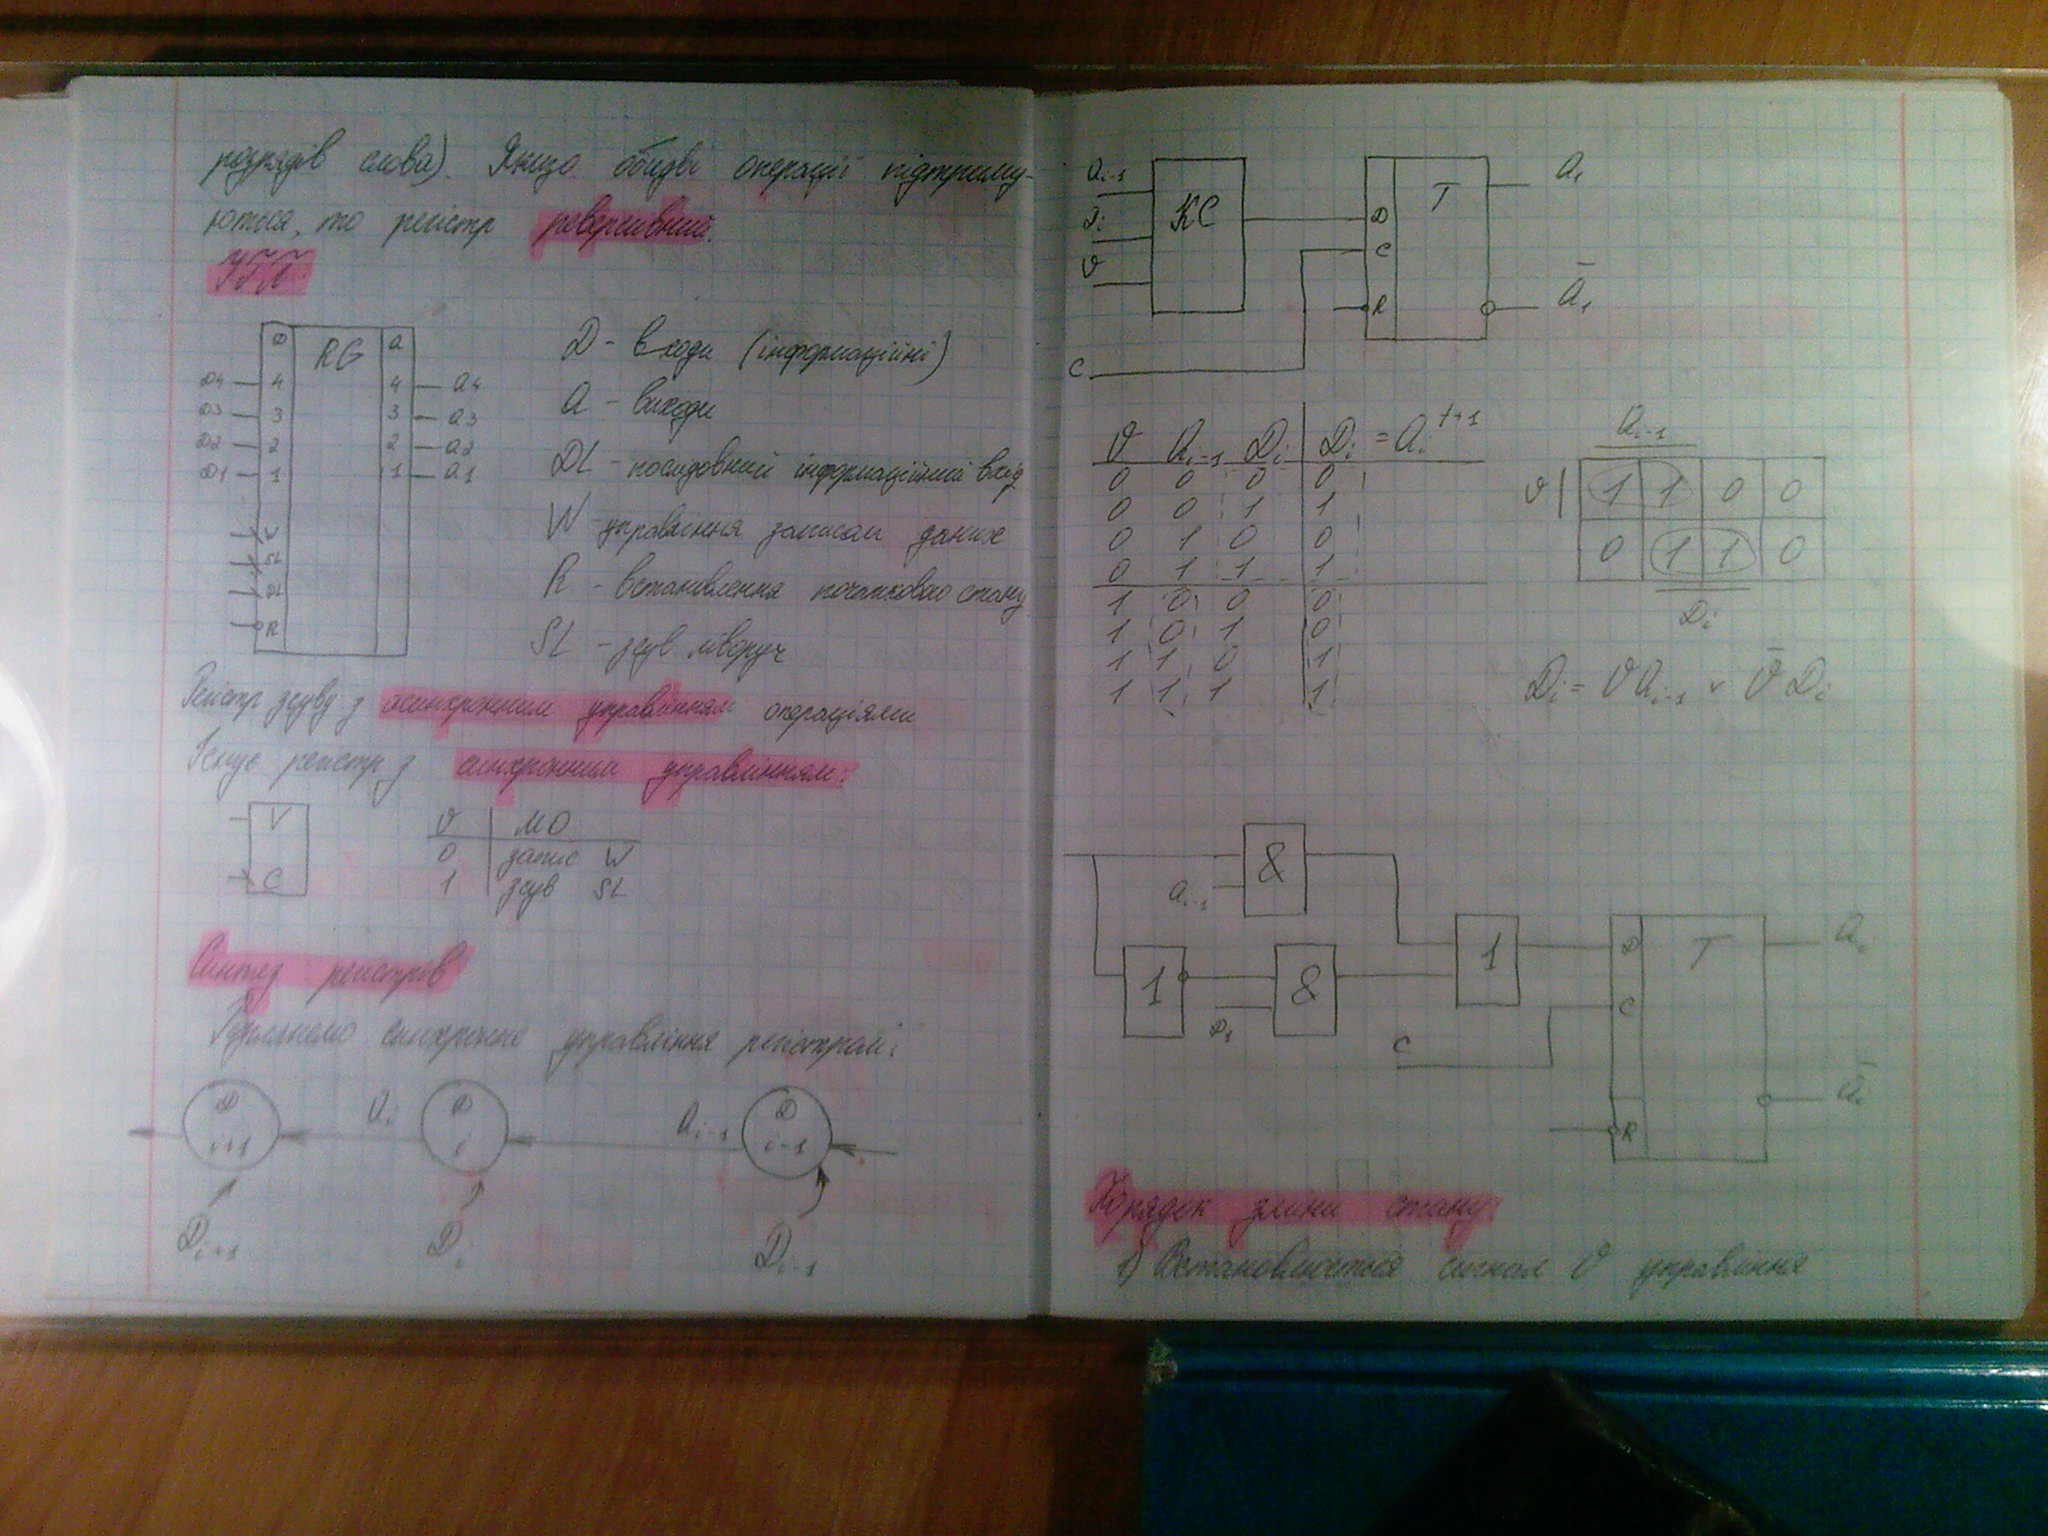 розрядів слова). Якщо обидві операції підтриму-
ються, то регістр реверсивний.
УГП:
D RG a
D4 4 4 a4
D3 3 3 a3
D2 2 2 a2
D1 1 1 a1
W
SL
DL
R
D - входи (інформаційні)
a - виходи
DL - послідовний інформаційний вхід
W - управління записом даних
R - встановлення початкового стану
SL - зсув ліворуч
Регістр зсуву з асинхронним управлінням операціями
Існує регістр з синхронним управлінням:
V
C
v МО
0 запис W
1 зсув SL
Синтез регістрів
Розглянемо синхронне управління регістрами:
D i+1 ai D i ai-1 D i-1
Di+1 Di Di-1
ai-1 КС D T a1
Di C
v R a̅1
C
v ai-1 Di Di = ai t+1
0 0 0 0
0 0 1 1
0 1 0 0
0 1 1 1
1 0 0 0
1 0 1 0
1 1 0 1
1 1 1 1
ai-1
v 1 1 0 0
0 1 1 0
Di
Di = v ai-1 ∨ v̅ Di
&
ai-1
1 & 1 D T ai
D1 C C
R a̅i
Порядок зміни стану:
1) Встановлюється сигнал v управління